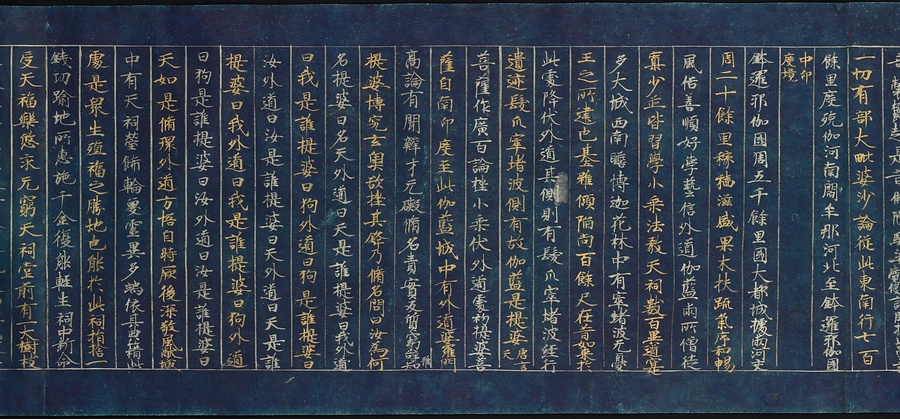 一切有部大毗婆沙論從此東南行七百
餘里度殑伽河南閻牟那河北至鉢邏耶伽國
中印
度境
鉢邏耶伽國周五千餘里國大都城據兩河交
周二十餘里稼穡滋盛果木扶疏氣序和暢
風俗善順好學藝信外道伽藍兩所僧徒
寡少並皆習學小乘法教天祠數百異道寔
多大城西南瞻博迦花林中有窣堵波無憂
王之所建也基雖傾陷尚百餘尺在昔如來於
此處降伏外道其側則有髮爪窣堵波經行
遺迹髮爪窣堵波側有故伽藍是提婆唐言天
菩薩作廣百論挫小乘伏外道處初提婆菩
薩自南印度至此伽藍城中有外道婆羅門
高論有聞辯才无礙循名責實反質窮辭
提婆博究玄奧欲挫其鋒乃循名問曰汝為何
名提婆曰名天外道曰天是誰提婆曰我外道
曰我是誰提婆曰狗外道曰狗是誰提婆曰
汝外道曰汝是誰提婆曰天外道曰天是誰
提婆曰我外道曰我是誰提婆曰狗外道
曰狗是誰提婆曰汝外道曰汝是誰提婆曰
天如是循環外道方悟自時厥後深敬風猷城
中有天祠瑩飾輪奐靈異多端依其典籍此
處是眾生殖福之勝地也能於此祠捐捨一
錢功踰他所惠施千金復能輕生祠中斷命
受天福樂悠永无窮天祠堂前有一大樹枝